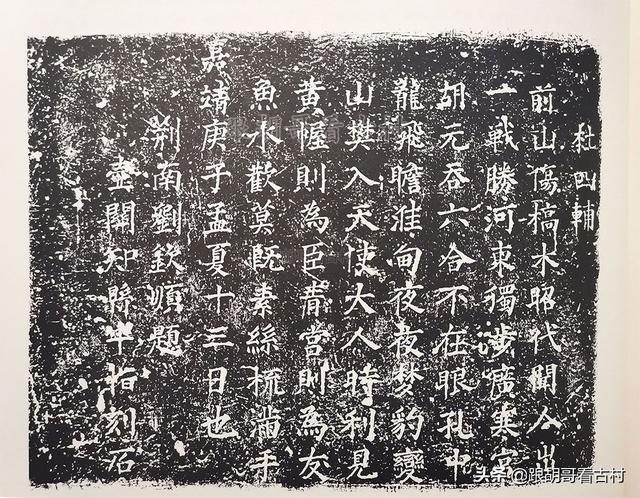 杜四輔
前山傷槁木昭代聞人出
一戰勝河東獨
胡元吞六合不在眼孔中
龍飛瞻淮甸夜夜梦豹變
山樊入天使大人時利見
黄幄則為臣青當則為友
魚水歡莫既素絲梳滿手
嘉靖庚子孟夏十三日也
荆南劉欽順題
壺關知縣刻石
头条@跟胡哥看古村